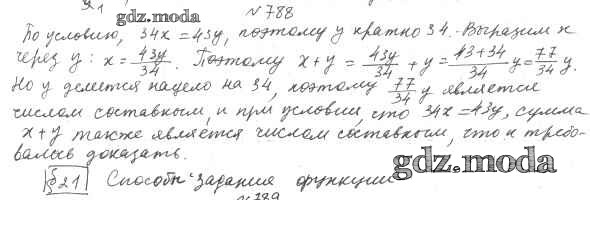 gdz.moda №788
По условию, 34x = 43y, поэтому y кратно 34. Выразим x
через y: x = 43y/34. Поэтому x + y = 43y/34 + y = 43+34/34 y = 77/34 y.
Но y делится нацело на 34, поэтому 77/34 y является
числом составным, и при условии, что 34x = 43y, сумма
x + y также является числом составным, что и требо-
валось доказать.
gdz.moda
§21 Способы задания функции